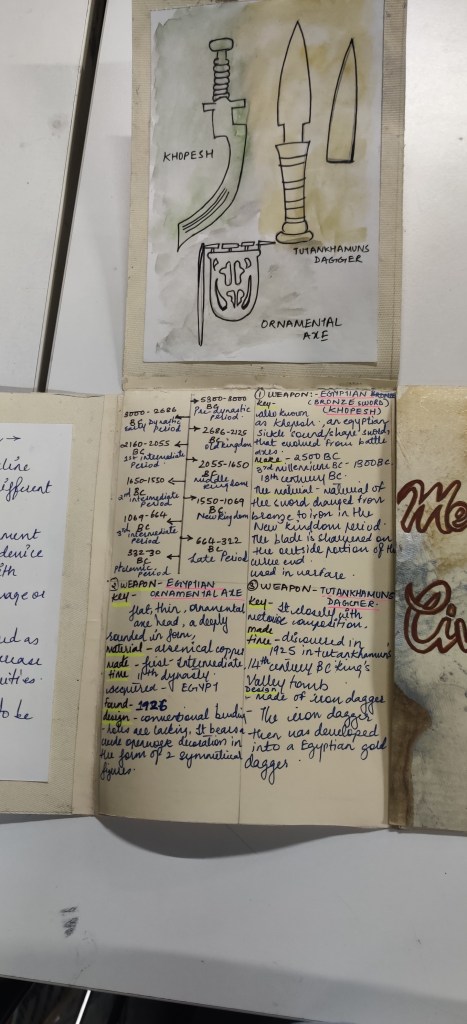 KHOPESH
TUTANKHAMUNS
DAGGER
ORNAMENTAL
AXE
5300-3000
BC
Pre dynastic
Period.
3000-2686
BC
Period
2686-2125
BC
Old Kingdom
2160-2055
BC
1st intermediate
Period
2055-1650
BC
middle
Kingdom
1650-1550
BC
2nd intermediate
Period
1550-1069
BC
New Kingdom
1069-664
BC
3rd intermediate
Period
664-322
BC
Late Period
332-30
BC
Ptolemaic
Period
① WEAPON:- EGYPTIAN
(BRONZE SWORD)
Key- (KHOPESH)
also known
as khepesh, an egyptian
sickle sword/shape swords
that evolved from battle
axes.
Make - 2500 BC
3rd millenium BC- 1300BC.
18th century BC.
The material- material of
the sword changed from
bronze to iron in the
New kingdom period.
The blade is sharpened on
the outside portion of the
curve end.
used in warfare.
② WEAPON- EGYPTIAN
Key- ORNAMENTAL AXE
flat, thin, ornamental
axe head, a deeply
rounded in form,
material - arsenical copper
made - first Intermediate,
time 11th dynasty.
acquired - EGYPT
found- 1926
design - conventional
are lacking. It bears a
openwork decoration in
the form of 2 symmetrical
figures.
③ WEAPON- TUTANKHAMUNS
DAGGER.
Key- It closely with
meteoric composition.
made
time - discovered in
1925 in tutankhamun's
14th century BC King's
Valley tomb
Design
- Made of iron dagger
- The iron dagger
then was developed
into a Egyptian gold
dagger.
line
different
ment
with
age or
ed as
to be
Me
Civ